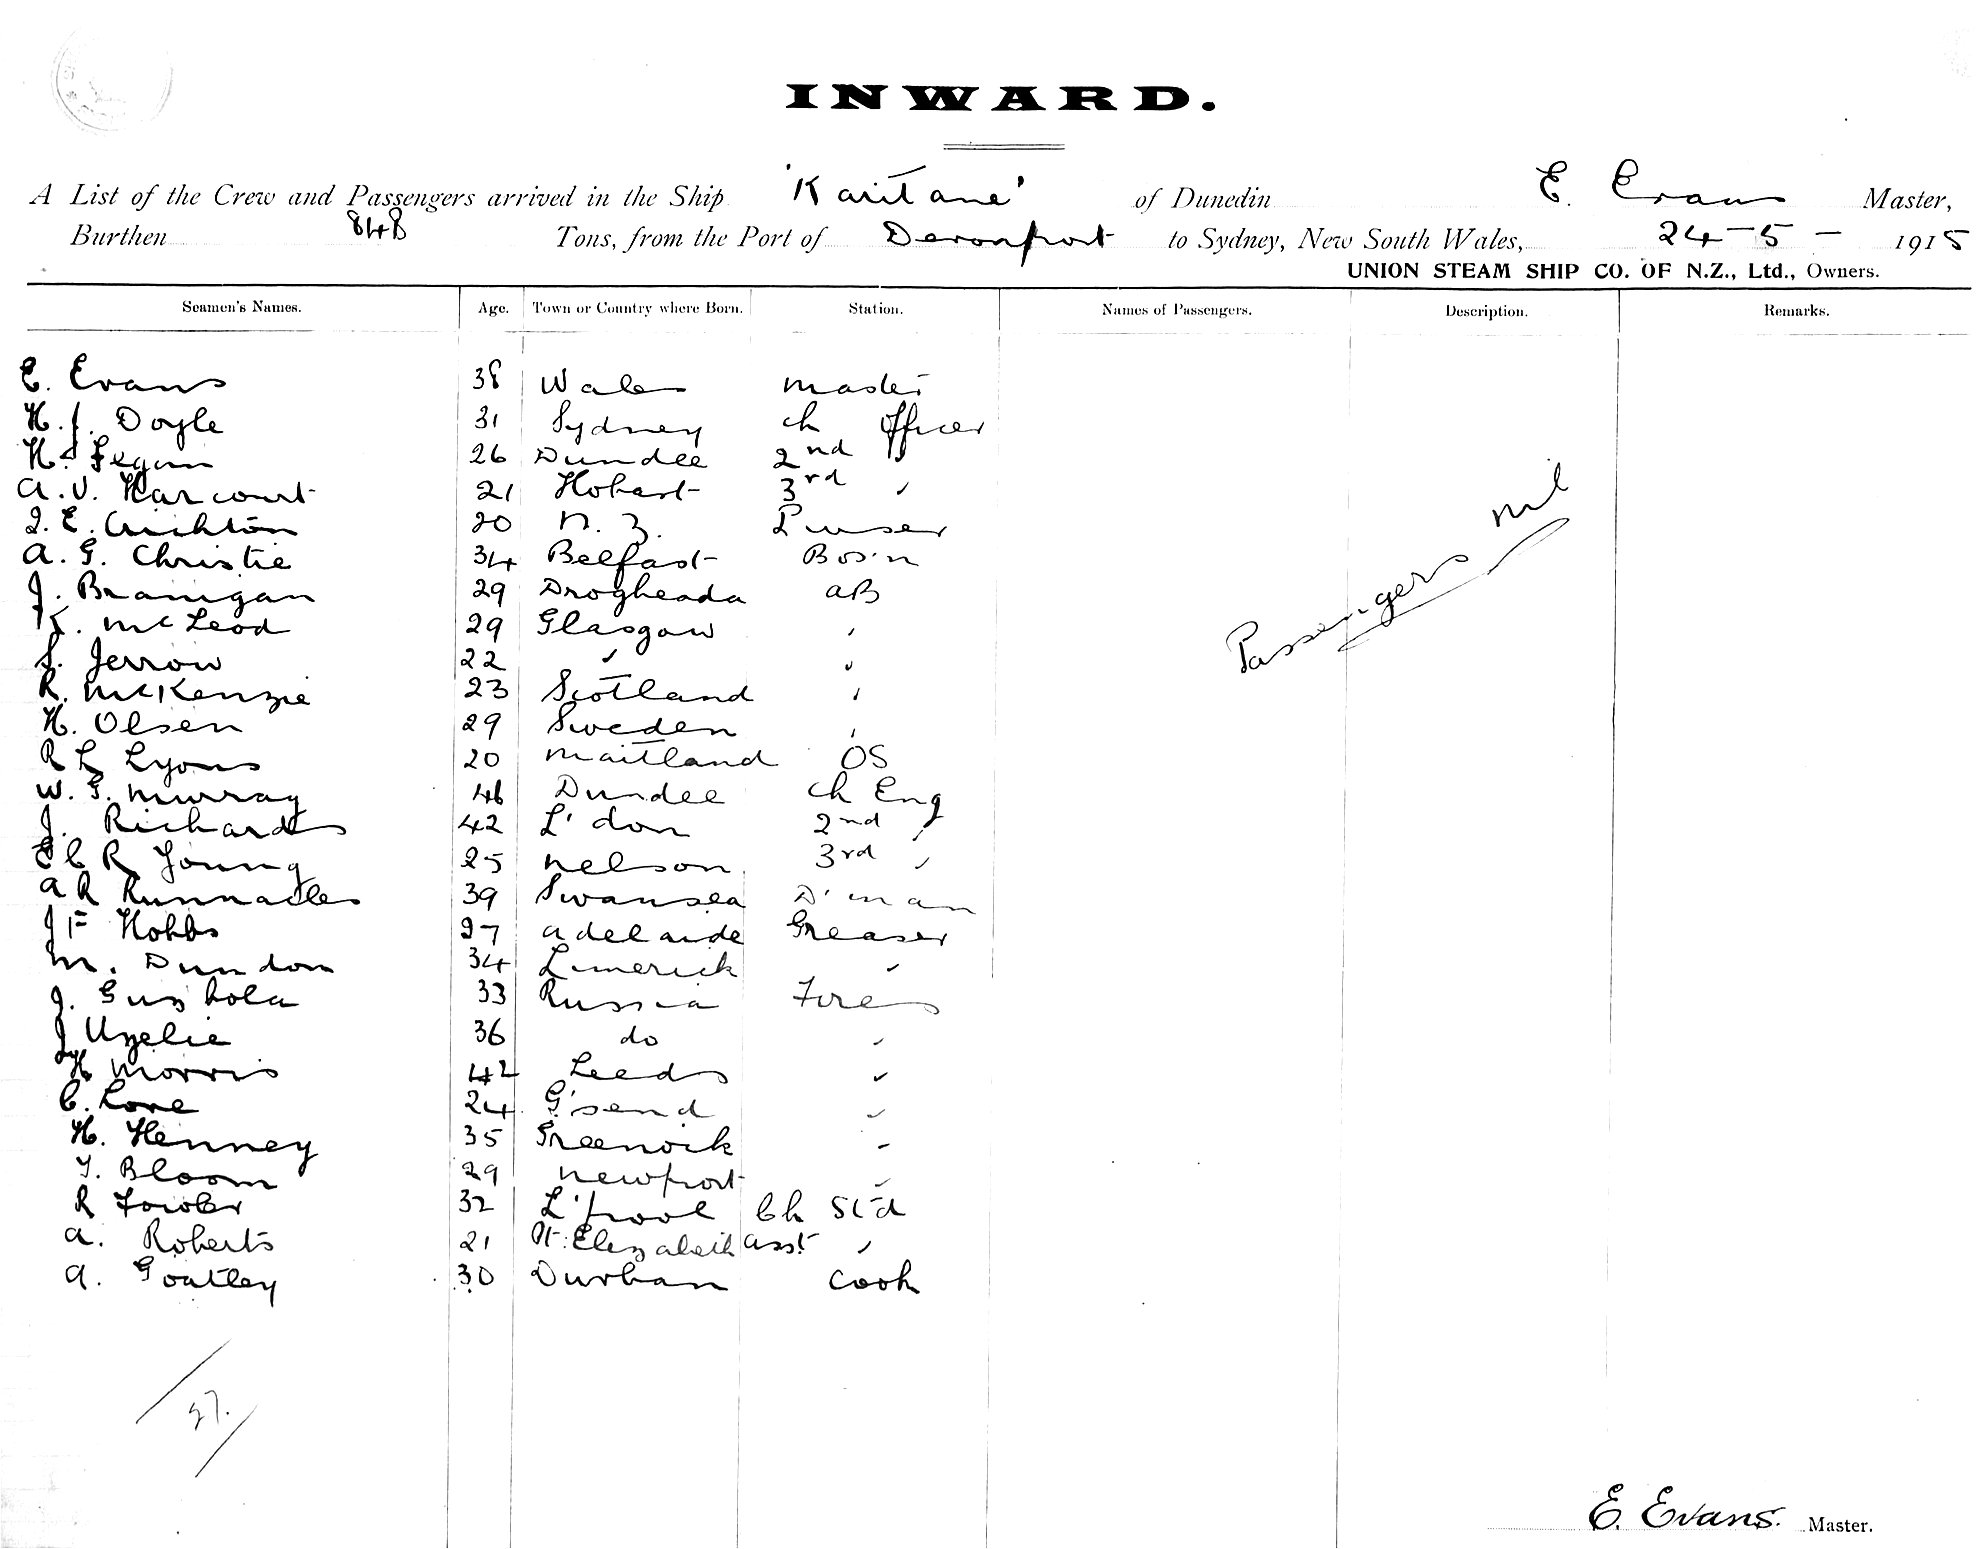 INWARD.
A List of the Crew and Passengers arrived in the Ship 'Kaitane' of Dunedin E. Evans Master,
Burthen 848 Tons, from the Port of Devonport to Sydney, New South Wales, 24-5- 1915
UNION STEAM SHIP CO. OF N.Z., Ltd., Owners.
Seamen's Names. Age. Town or Country where Born. Station. Names of Passengers. Description. Remarks.
E. Evans 38 Wales Master
H. J. Doyle 31 Sydney Ch Officer
H. Fegan 26 Dundee 2nd
A. V. Harcourt 21 Hobart 3rd "
J. E. Crichton 20 N. Z. Purser
A. G. Christie 34 Belfast Bos'n
J. Branigan 29 Drogheada AB
K. McLeod 29 Glasgow "
S. Jerrow 22 " "
R. McKenzie 23 Scotland "
H. Olsen 29 Sweden "
R L Lyons 20 Maitland OS
W. G. Murray 46 Dundee Ch Eng
J. Richards 42 L'don 2nd "
E C R Young 25 Nelson 3rd "
A R Runnacles 39 Swansea D'man
J F Hobbs 27 Adelaide Greaser
M. Dundon 34 Limerick "
J. Guzhola 33 Russia Fires
J Uzelie 36 do "
H Morris 42 Leeds "
C. Love 24 G'send "
H. Henney 35 Greenoik "
T. Bloom 29 Newport "
R Fowler 32 L'pool Ch St'd
A. Roberts 21 Pt. Elizabeth Asst "
A. Goatley 30 Durban Cook
Passengers nil
27.
E. Evans. Master.